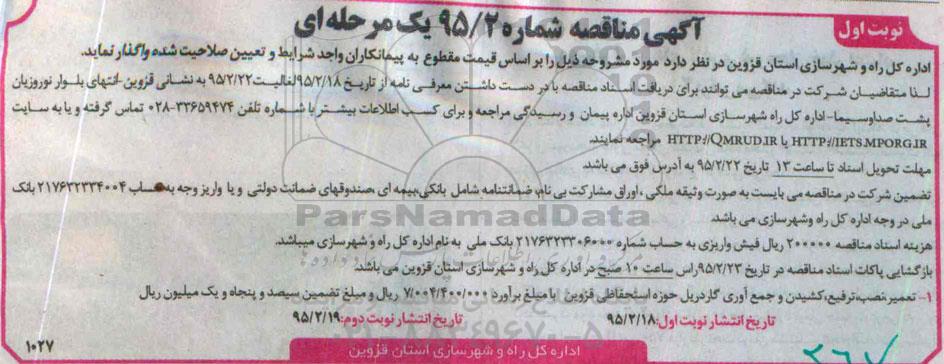 نوبت اول
آگهی مناقصه شماره ۹۵/۲ یک مرحله ای
اداره کل راه و شهرسازی استان قزوین در نظر دارد مورد مشروحه ذیل را بر اساس قیمت مقطوع به پیمانکاران واجد شرایط و تعیین صلاحیت شده واگذار نماید.
لذا متقاضیان شرکت در مناقصه می توانند برای دریافت اسناد مناقصه با در دست داشتن معرفی نامه از تاریخ ۹۵/۲/۱۸ لغایت ۹۵/۲/۲۲ به نشانی قزوین -انتهای بلوار نوروزیان
پشت صداوسیما-اداره کل راه شهرسازی استان قزوین اداره پیمان و رسیدگی مراجعه و برای کسب اطلاعات بیشتر با شماره تلفن ۳۳۶۵۹۴۷۴-۰۲۸ تماس گرفته و یا به سایت
HTTP://IETS.MPORG.IR یا HTTP://QMRUD.IR مراجعه نمایند.
مهلت تحویل اسناد تا ساعت ۱۳ تاریخ ۹۵/۲/۲۲ به آدرس فوق می باشد.
تضمین شرکت در مناقصه می بایست به صورت وثیقه ملکی ، اوراق مشارکت بی نام، ضمانتنامه شامل بانکی،بیمه ای ،صندوقهای ضمانت دولتی و یا واریز وجه به حساب ۲۱۷۶۳۲۳۳۴۰۰۴ بانک
ملی در وجه اداره کل راه وشهرسازی می باشد.
ParsNamadData
هزینه اسناد مناقصه ۲۰۰۰۰۰ ریال فیش واریزی به حساب شماره ۲۱۷۶۳۲۳۳۰۶۰۰۰ بانک ملی به نام اداره کل راه و شهرسازی میباشد.
بازگشایی پاکات اسناد مناقصه در تاریخ ۹۵/۲/۲۳ راس ساعت ۱۰ صبح در اداره کل راه و شهرسازی استان قزوین می باشد.
۱- تعمیر،نصب،ترفیع،کشیدن و جمع آوری گاردریل حوزه استحفاظی قزوین با مبلغ برآورد ۷/۰۰۴/۴۰۰/۰۰۰ ریال و مبلغ تضمین سیصد و پنجاه و یک میلیون ریال
تاریخ انتشار نوبت اول: ۹۵/۲/۱۸ تاریخ انتشار نوبت دوم: ۹۵/۲/۱۹
۱۰۲۷
اداره کل راه و شهرسازی استان قزوین